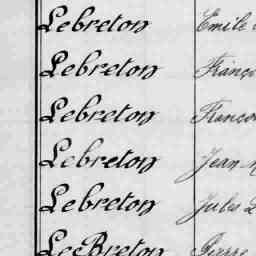 Lebreton Emile
Lebreton Franço
Lebreton Franço
Lebreton Jean M
Lebreton Jules L
LeBreton Pierre